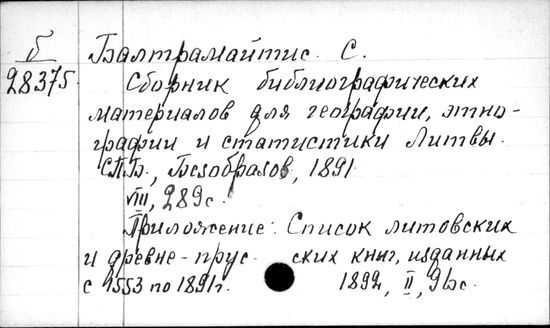 Б
28375
Балтрамайтис. С.
Сборник библиографических
материалов для географии, этно-
графии и статистики Литвы.
СПБ., Безобразов, 1891
VIII, 289 с.
Приложение: Список литовских
и древне-прусских книг, изданных
с 1553 по 1891 г. 1892, II, 96 с.